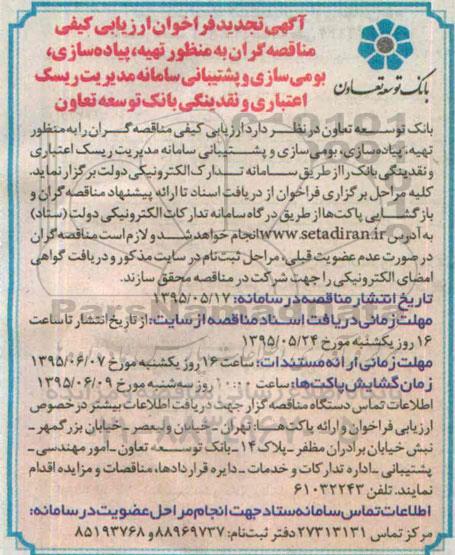 آگهی تجدید فراخوان ارزیابی کیفی
مناقصه گران به منظور تهیه، پیاده‌سازی،
بومی‌سازی و پشتیبانی سامانه مدیریت ریسک
اعتباری و نقدینگی بانک توسعه تعاون
بانک توسعه تعاون
بانک توسعه تعاون در نظر دارد ارزیابی کیفی مناقصه گران را به منظور
تهیه، پیاده‌سازی، بومی‌سازی و پشتیبانی سامانه مدیریت ریسک اعتباری
و نقدینگی بانک را از طریق سامانه تدارک الکترونیکی دولت برگزار نماید.
کلیه مراحل برگزاری فراخوان از دریافت اسناد تا ارائه پیشنهاد مناقصه‌گران و
بازگشایی پاکت‌ها از طریق درگاه سامانه تدارکات الکترونیکی دولت (ستاد)
به آدرس www.setadiran.ir انجام خواهد شد و لازم است مناقصه گران
در صورت عدم عضویت قبلی، مراحل ثبت نام در سایت مذکور و دریافت گواهی
امضای الکترونیکی را جهت شرکت در مناقصه محقق سازند.
تاریخ انتشار مناقصه در سامانه: ۱۳۹۵/۰۵/۱۷
مهلت زمانی دریافت اسناد مناقصه از سایت: از تاریخ انتشار تا ساعت
۱۶ روز یکشنبه مورخ ۱۳۹۵/۰۵/۲۴
مهلت زمانی ارائه مستندات: ساعت ۱۶ روز یکشنبه مورخ ۱۳۹۵/۰۶/۰۷
زمان گشایش پاکت‌ها: ساعت ۱۰:۰۰ روز سه شنبه مورخ ۱۳۹۵/۰۶/۰۹
اطلاعات تماس دستگاه مناقصه گزار جهت دریافت اطلاعات بیشتر در خصوص
ارزیابی فراخوان و ارائه پاکت‌ها: تهران - خیابان ولیعصر - خیابان بزرگمهر -
نبش خیابان برادران مظفر - پلاک ۱۴ - بانک توسعه تعاون - امور مهندسی -
پشتیبانی - اداره تدارکات و خدمات - دایره قراردادها، مناقصات و مزایده اقدام
نمایند. تلفن ۶۱۰۳۲۲۴۳
اطلاعات تماس سامانه ستاد جهت انجام مراحل عضویت در سامانه:
مرکز تماس ۲۷۳۱۳۱۳۱ دفتر ثبت نام: ۸۸۹۶۹۷۳۷ و ۸۵۱۹۳۷۶۸